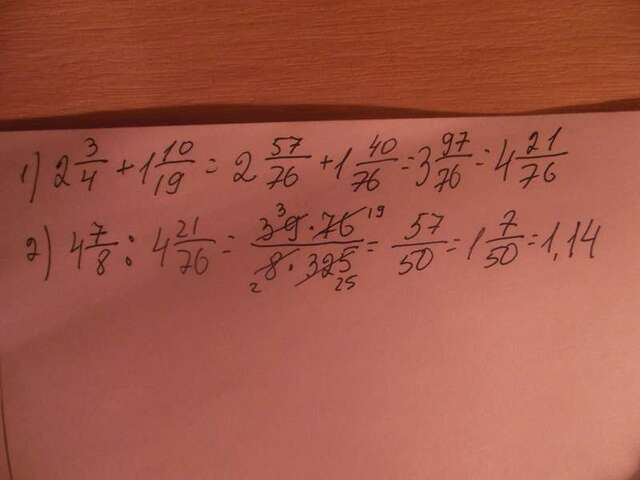 1) 2 3/4 + 1 10/19 = 2 57/76 + 1 40/76 = 3 97/76 = 4 21/76
2) 4 7/8 : 4 21/76 = 39 · 76 / 8 · 325 = 57/50 = 1 7/50 = 1,14
3 19
2 25